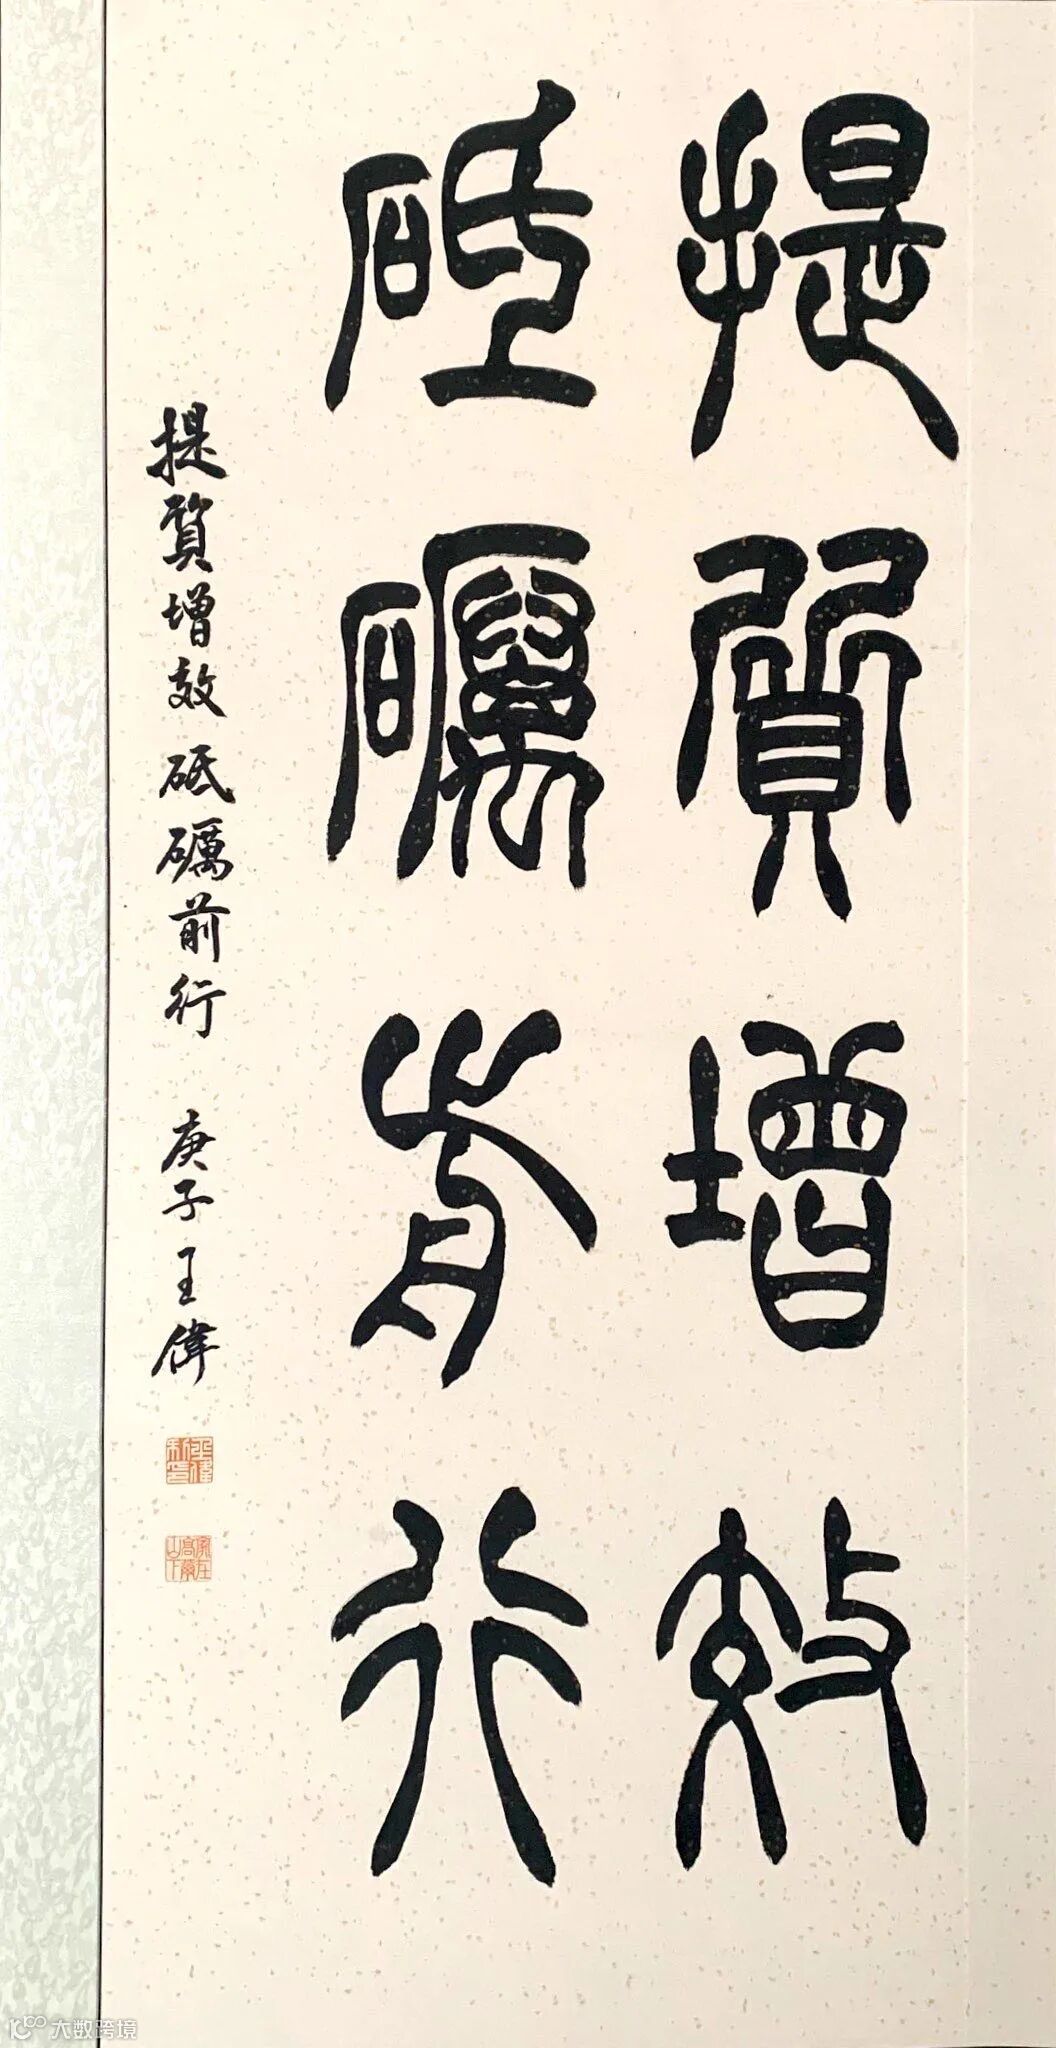 提質增效
砥礪前行
提質增效砥礪前行 庚子王偉
大数跨境